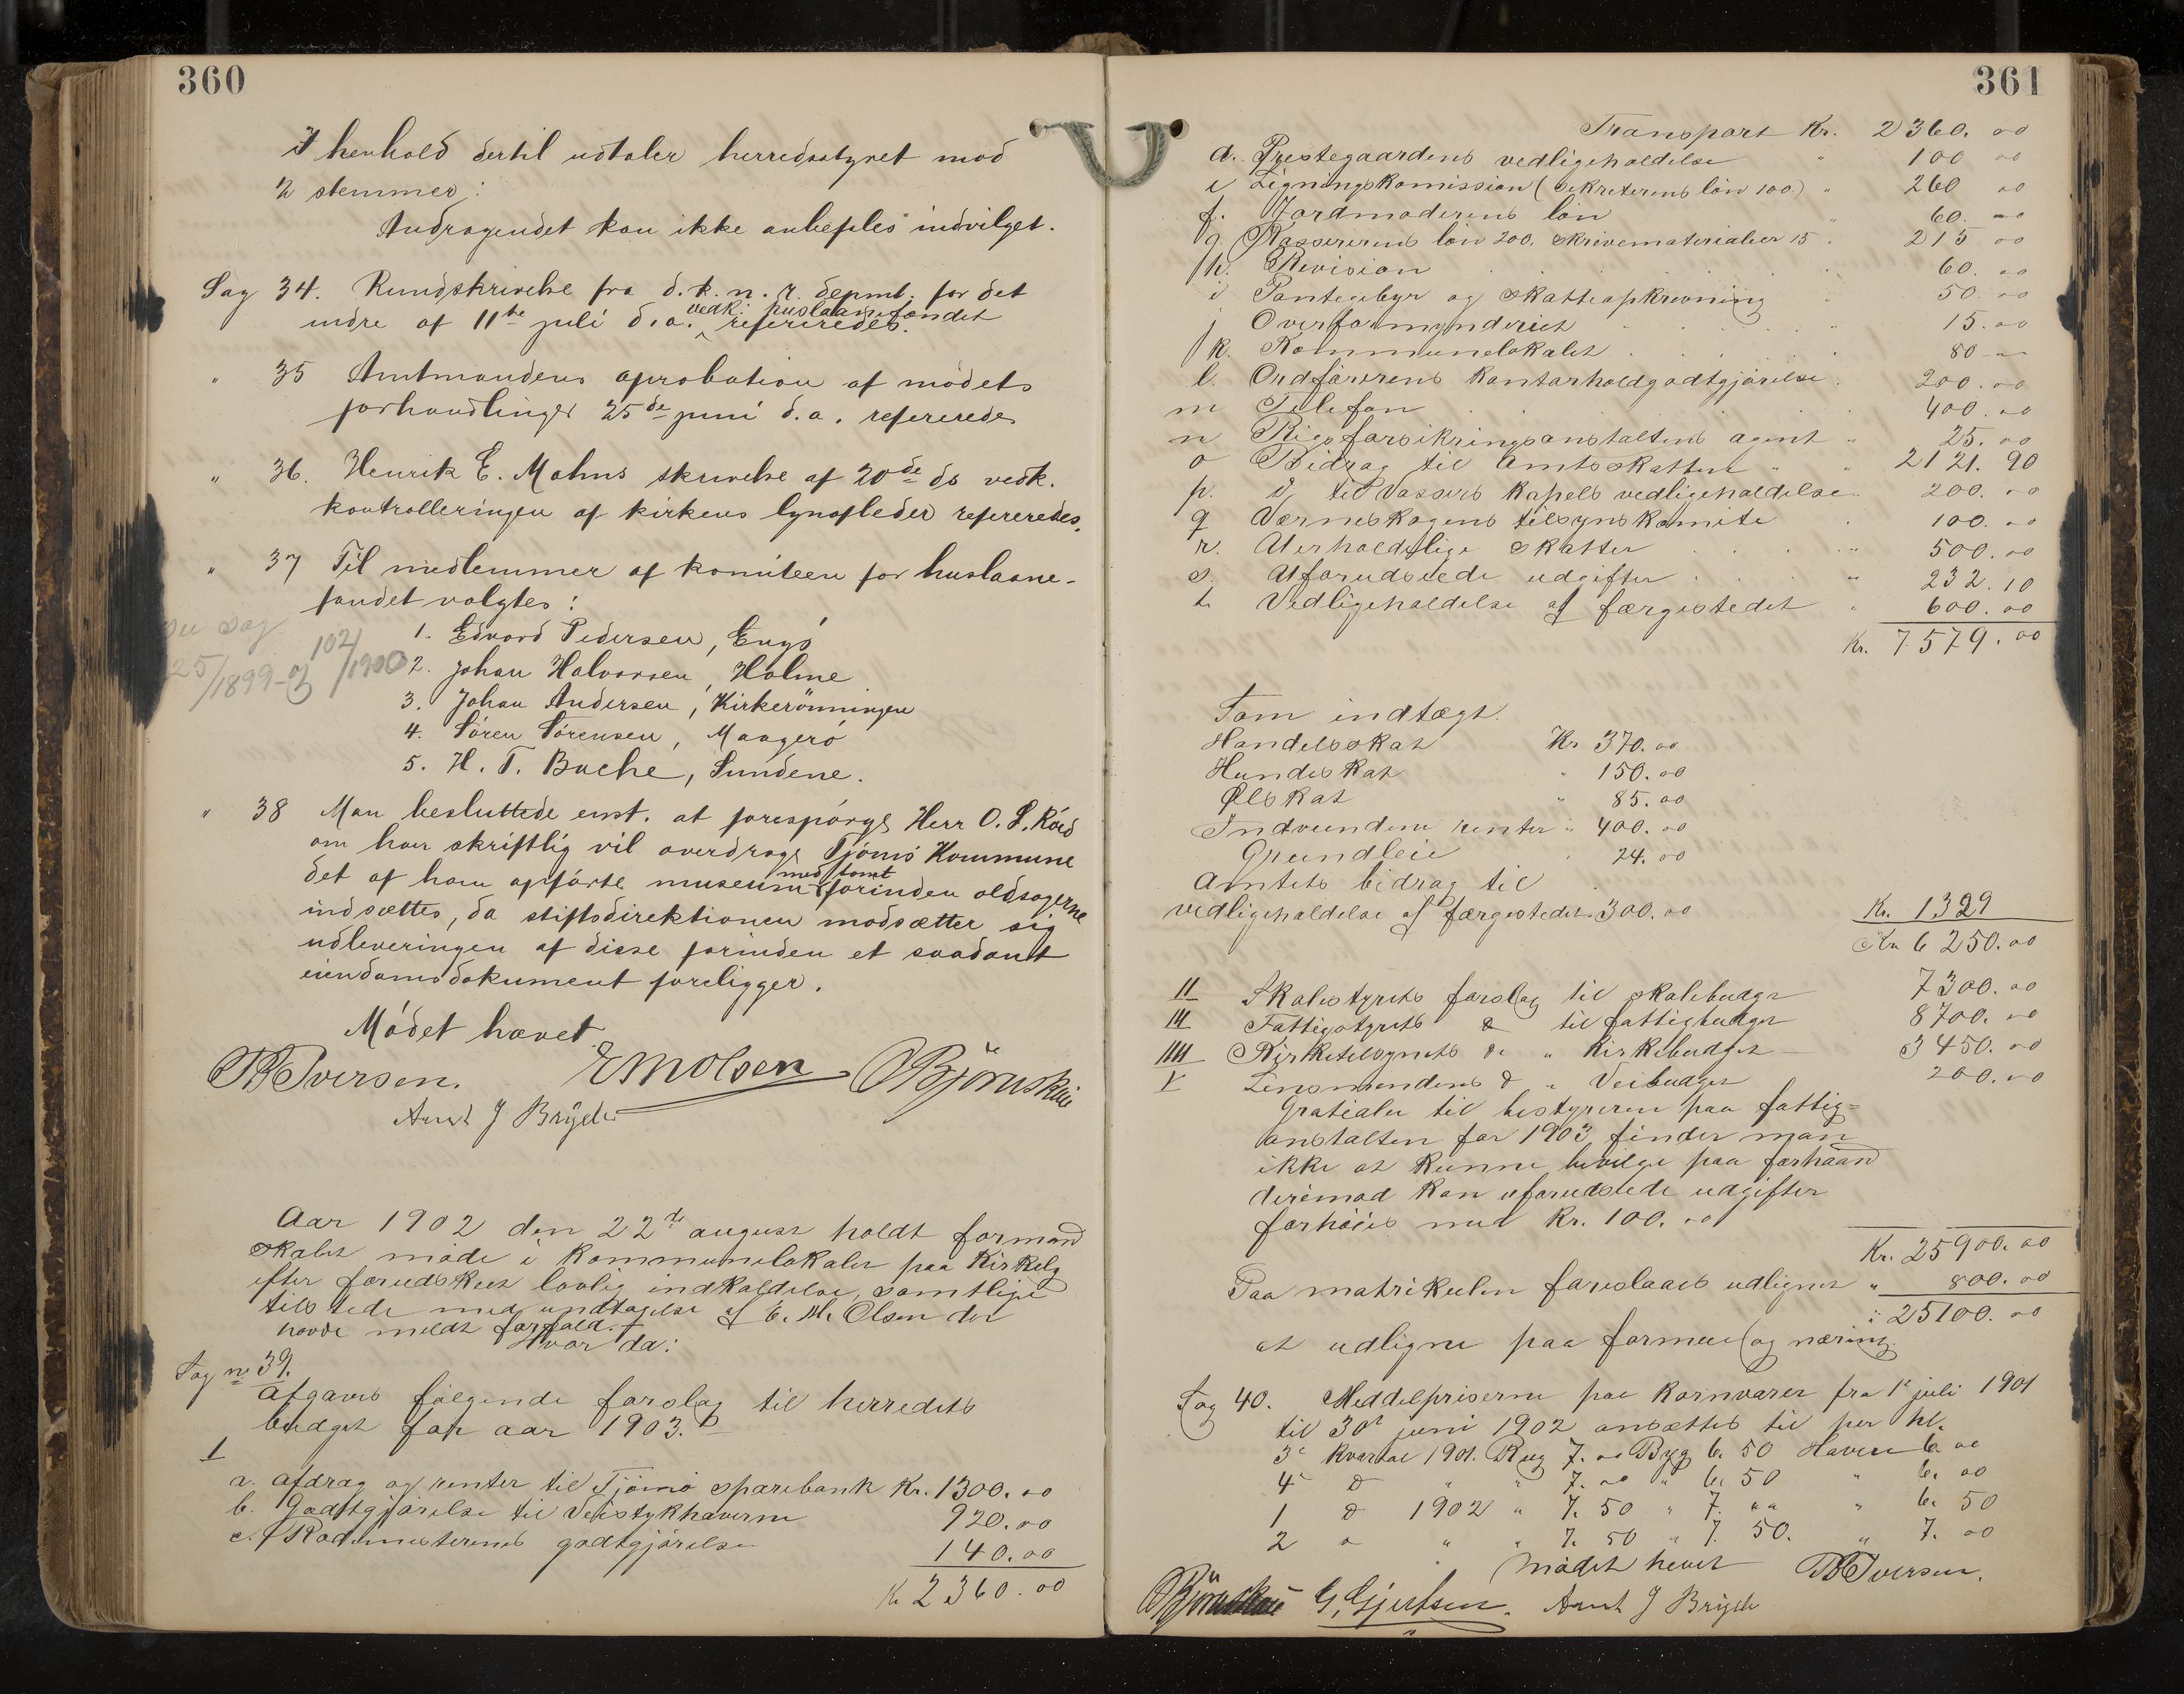 360
I henhold dertil udtaler herredsstyret mod
2 stemmer:
Andragendet kan ikke anbefales indvilget.
Sag 34. Rundskrivelse fra d. k. n. r. depmt. for det
indre af 11te juli d.a. vedk. huslaanefondet refereredes.
" 35 Amtmandens aprobation af mödets
forhandlinger 25de juni d.a. refereredes
" 36. Henrik E. Mahns skrivelse af 20de ds vedk.
kontrolleringen af kirkens lynafleder refereredes.
" 37 Til medlemmer af komiteen for huslaane-
fondet valgtes:
Se sag
25/1899 og 102/1900
1. Edvard Pedersen, Engö
2. Johan Halvorsen, Holme
3. Johan Andersen, Kirkerönningen
4. Sören Sörensen, Maagerö
5. H. T. Bache, Sundene.
" 38 Man besluttede enst. at forespörge Herr O. L. Röed
om han skriftlig vil overdrage Tjömö Kommune
det af ham opförte museum med tomt forinden oldsagerne
indsættes, da stiftsdirektionen modsætter sig
udleveringen af disse forinden et saadant
eiendomsdokument foreligger.
Mödet hævet.
Iversen. E M Olsen O Björnskau
Arnt J Bryde
Aar 1902 den 22de august holdt formand
skabet møde i kommunelokalet paa Kirkelg
efter forudskeet lovlig indkaldelse, samtlige
tilstede med undtagelse af E. M. Olsen der
havde meldt forfald.
Hvor da:
Sag nr 39.
Afgaves følgende forslag til herredets
budget for aar 1903.
I
a. afdrag og renter til Tjømø sparebank Kr. 1300.00
b. Godtgjørelse til Veistykhaverne 920.00
c. Rodemesterens godtgjørelse 140.00
Kr 2360.00
361
Transport Kr. 2360.00
d. Prestegaardens vedligeholdelse " 100 00
e Ligningskomission (sekreterens løn 100.) " 260 00
f. Jordmoderens løn 60.00
g. Kassererens løn 200. skrivematerialier 15 . 215 00
h. Revision 60.00
i Pantegebyr og skatteopkrevning 50.00
j Overformynderiet 15.00
k. Kommunelokalet 80 00
l. Ordførerens kontorholdgodtgjørelse. 200.00
m Telefon 400.00
n Rigsforsikringsanstaltens agent " 25.00
o Bidrag til amtsskatten " " 2121.90
p. do til Vassers kapels vedligeholdelse 200.00
q Værneskogens tilsynskomite 100.00
r. Uerholdelige skatter 500.00
s. Uforudseede udgifter 232.10
t. Vedligeholdelse af færgestedet " 600.00
Kr. 7579.00
Som indtægt.
Handelsskat Kr 370.00
Hundeskat " 150.00
Ølskat " 85.00
Indvundne renter " 400.00
Grundleie 24.00
Amtets bidrag til
vedligeholdelse af færgestedet 300.00 Kr. 1329
Kr 6250.00
II Skolestyrets forslag til skolebudget 7300.00
III Fattigstyrets do til fattigbudget 8700.00
IIII Kirketilsynets do " Kirkebudget 3450.00
V Lensmandens do " Veibudget 200.00
Gratiale til bestyreren paa fattig=
anstalten for 1903 finder man
ikke at kunne bevilge paa forhaand
derimod kan uforudseede udgifter
forhøies med Kr. 100.00
Kr. 25900.00
Paa matrikulen foreslaaes udlignet " 800.00
" 25100.00
at udligne paa formue og næring.
Sag 40. Meddelpriserne paa kornvarer fra 1e juli 1901
til 30e juni 1902 ansættes til per hl.
3e kvartal 1901. Rug 7.00 Byg 6.50 Havere 6.00
4e do " " 7.00 " 6.50 " 6.00
1 do 1902 " 7.50 " 7.00 " 6.50
2 do " " 7.50 " 7.50. " 7.00
Mødet hevet Iversen.
O Björnskau G. Gjertsen. Arnt J Bryde